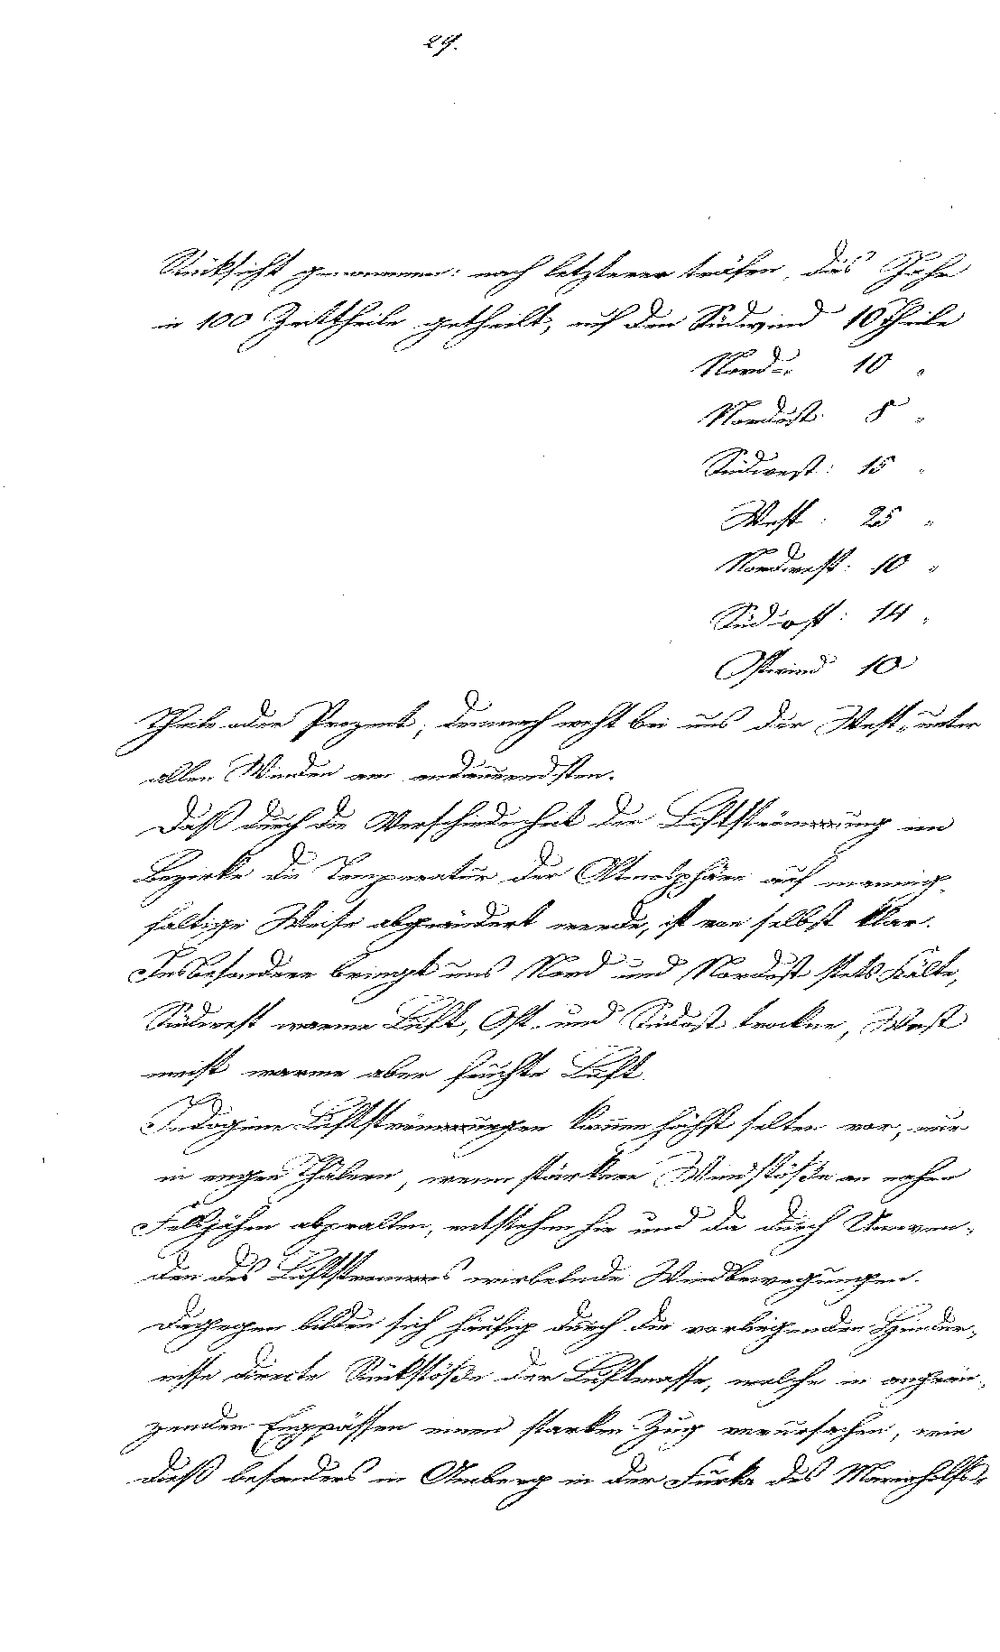 29.
Rücksicht genommen: nach letzterer träfen, das Jahr
in 100 Zeittheile getheilt, auf den Südwind 10 Theile
Nord-: 10 "
Nordost: 8 "
Südwest: 15 "
West: 25 "
Nordwest: 10 "
Südost: 14 "
Ostwind 10
Theile oder Prozent; demnach weht bei uns der West- unter
allen Winden am andauerndsten.
Daß durch die Verschiedenheit der Luftströmung im
Bezirke die Temperatur der Atmosphäre auf mannig-
faltige Weise abgeändert werde, ist von selbst klar.
Insbesondere bringt uns Nord und Nordost stets Kälte,
Südwest warme Luft, Ost- und Südost trockne, West
meist warme aber feuchte Luft.
Indogine Luftströmungen kommen höchst selten vor, nur
in engen Thälern, wenn stärkere Windstöße an nahen
Felsjähen abprallen, entstehen hie und da durch Umwen-
den des Luftstromes wirbelnde Windbewegungen.
Dagegen bilden sich häufig durch die vorliegenden Hinder-
nisse directe Rückstöße der Luftmasse, welche in angrän-
zenden Engpässen einen starken Zug verursachen, wie
dieß besonders in Amberg in der Furka des Mariahilfs-